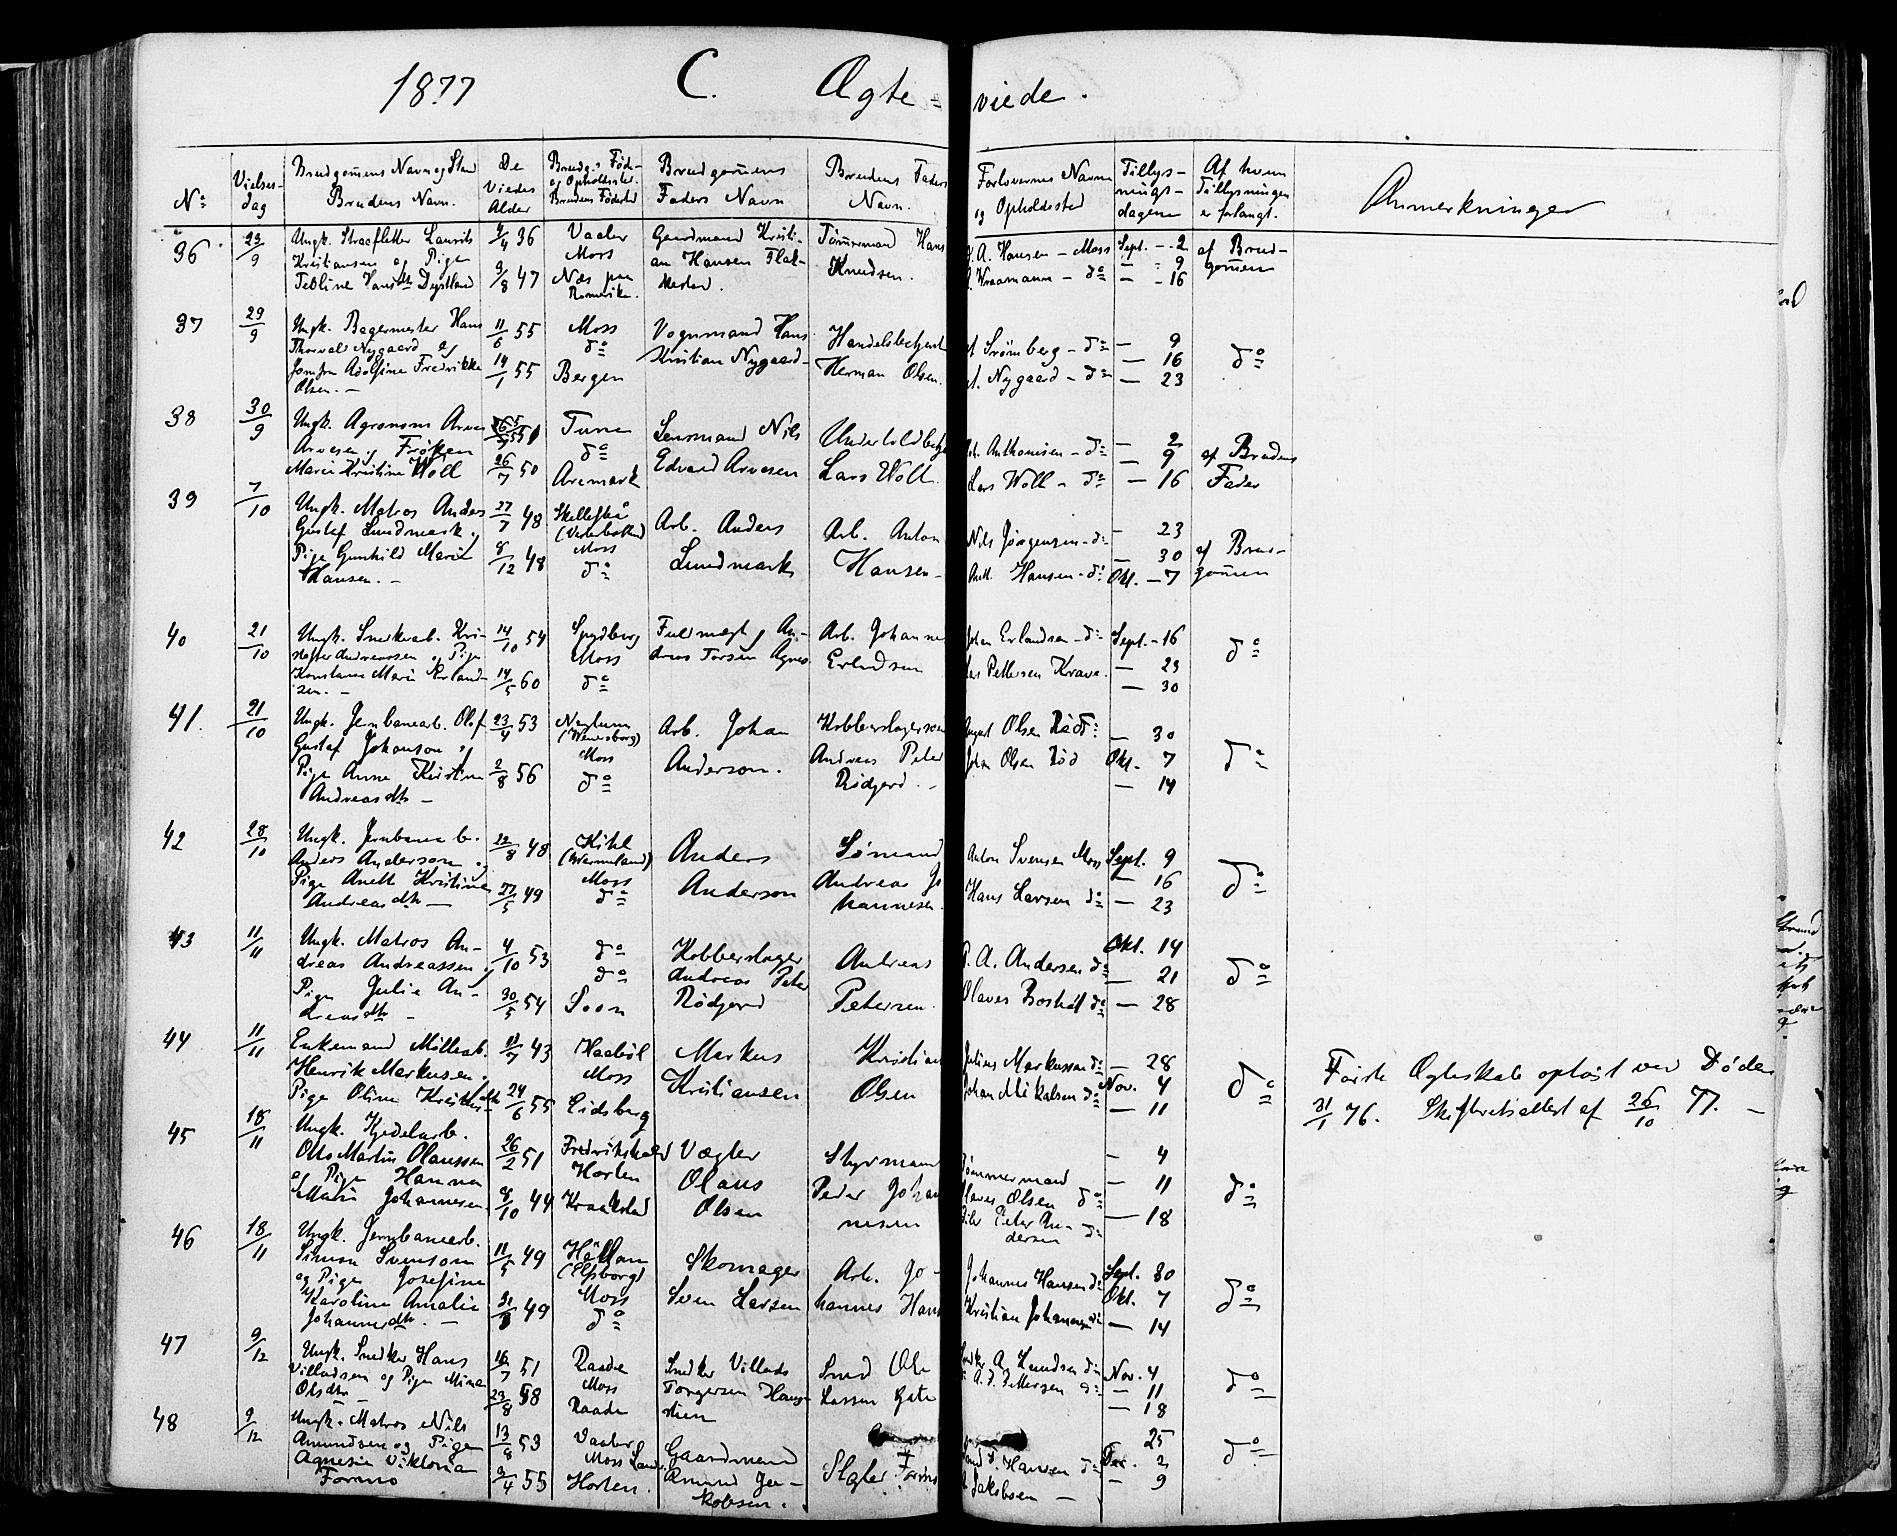 1877 C. Ægte- viede.
No Vielses-dag Brudgomens Navn og Stand Brudens Navn. De Viedes Alder Brudg. Føde- og Opholdssted. Brudens Fødested Brudgomens Faders Navn Brudens Faders Navn. Forlovernes Navne og Opholdssted Tillys-nings-dagene Af hvem Tillysningen er forlangt. Anmerkninger
36 23/9 Ungk. Laurits 4/4 36 Vaaler Gaardmand Kristi- Tømmermand Hans A. Hansen - Moss Sept. - 2 af Brud-
Kristiansen og Pige Moss an Hansen Flak- Knudsen. - 9 gomen
Hansdtr 9/8 47 Næs paa Romerike. stad. - do - 16
37 29/9 Ungk. Bagermester Hans 11/6 55 Moss Vognmand Hans Handelsbetjent Strømberg - do - 9
Thorvald Nygaard og do Kristian Nygaard - Herman Olsen. - 16 do
Jomfru Adolfine Fredrikke 14/1 55 Bergen Nygaard - do - 23
Olsen. -
38 30/9 Ungk. Agronom Arve Tune Lensmand Nils Anthonisen - do - 2 af Brudens
Arvesen og Frøken do Edvard Arvesen Lars Woll - 9 Fader
Marie Kristine Woll 26/7 50 Aremark Lars Woll - do - 16
39 7/10 Ungk. Matros Anders 27/7 48 Skellefteå Arb. Anders Arb. Anton Nils Jørgensen - do - 23
Gustaf Lundmark og (Vesterbotten) Lundmark Hansen - - 30 af Brud-
Pige Gunhild Marie 8/12 48 Moss Ant. Hansen - do Okt. - 7 gomen
Hansen. - do
40 21/10 Ungk. Snekkerarb. Kri- 14/10 54 Spydberg Fuldmægt. An- Arb. Johannes Johan Erlandsen - do Sept. - 16 do
stoffer Andreassen og Pige Moss dreas Torsen Agnes Erlandsen Pettersen Krave. - 23
Konstance Marie Erland- 14/5 60 do - 30
sen. -
41. 21/10 Ungk. Jernbanearb. Olof 23/4 53 (Wenersborg) Arb. Johan Kobberslagersvend August Olsen Rød - 30
Gustaf Johanson og Moss Anderson. Andreas Peter Johan Olsen Rød Okt. - 7 do
Pige Anne Kristine 2/8 56 do Rødgerd. - - 14
Andreasdtr -
42 28/10 Ungk. Jernbanearb. 22/8 48 Kihl Anders Sømand Anton Svensen Moss Sept. 9
Anders Anderson og (Wermeland) Anderson Andreas Jo- - 16 do
Pige Anett Kristine Moss hannesen. Hans Larsen do - 23
Andreasdtr - 27/5 49 do
43 11/11 Ungk. Matros An- 4/10 53 do Kobberslager Andreas P. A. Andersen do Okt. 14
dreas Andreassen og do Andreas Peter Petersen - 21 do
Pige Julie An- 30/5 54 Soon Rødgerd Olaves do - 28
dreasdtr -
44 11/11 Enkemand Møllearb. 11/7 43 Haabøl Markus Kristian Julius Markussen do - 28 Første Ægteskab opløst ved Døden
Henrik Markusen. Moss Kristiansen Olsen Johan Mikalsen do Nov. 4 do 31/1 76. Skifteretsattest af 26/10 77. -
Pige Oline 24/6 55 Eidsberg - 11
45 18/11 Ungk. Kjedelarb. 26/2 51 Fredrikshald Vægter Styrmand Tømmermand - 4
Otto Martin Olaussen Horten Olaus Peder Johan- Olaves Olsen do - 11 do
og Pige Hanna 8/10 44 Kraakstad Olsen nesen Peter An- - 18
Marie Johannesen dersen do
46 18/11 Ungk. Jernbanearb. 11/5 49 Skomager Arb. Jo- Johannes Hansen do Sept. 30
Simon Svenson (Elfsborg) Sven Larsen hannes Hans Kristian Johannesen do Okt. 7 do
og Pige Josefine Moss - 14
Karoline Amalie 49 do
Johannesdtr. -
47 9/12 Ungk. Snedker Hans 16/7 51 Raade Snedker Villads Smed Ole A. Knudsen do Nov. 4
Villadsen og Pige Mina Moss Torgersen Haug- Lassen A. D. Pettersen do - 11 do
Olsdtr - 23/8 58 Raade stien - 18
48 9/12 Ungk. Matros Nils 13/8 53 Vaaler Gaardmand Slagter Hansen do 25 do
Amundsen og Pige Moss Land. Amund Ja- Jakobsen - Dec. 2
Agnesia Viktoria 2/4 55 Horten. kobsen. - 9
Formo